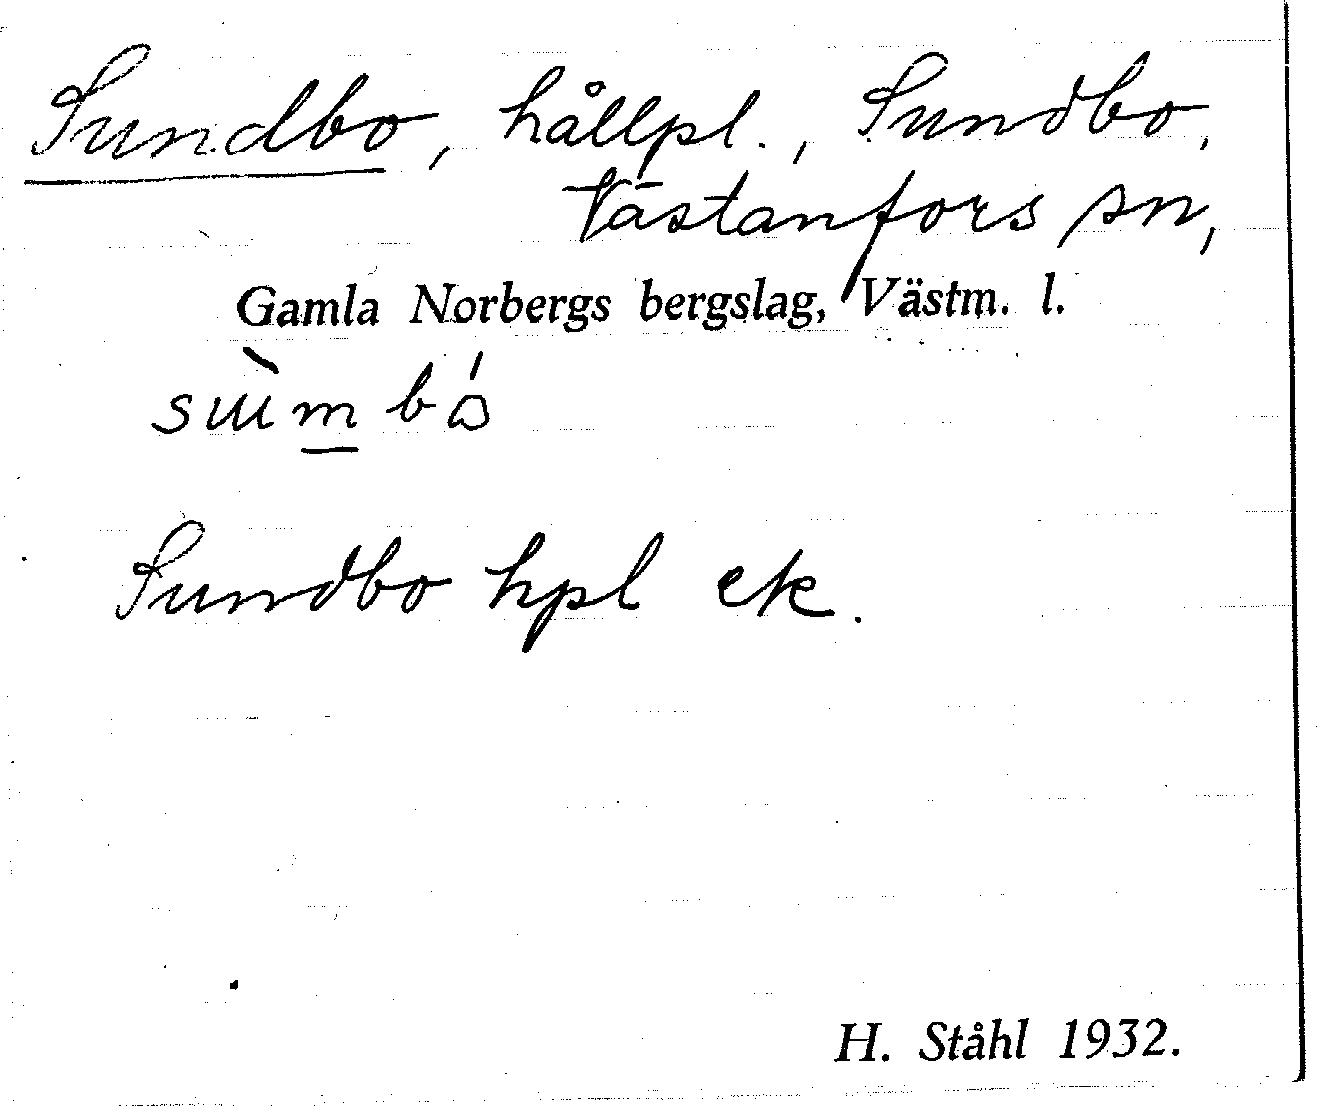 Sundbo, hållpl., Sundbo,
Västanfors sn,
Gamla Norbergs bergslag, Västm. l.
Sundbo hpl ek.
H. Ståhl 1932.